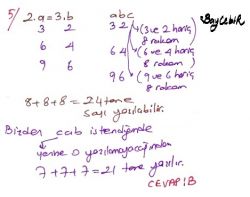 5/ 2.a = 3.b abc BayCebir
3 2 32 → (3 ve 2 hariç 8 rakam)
6 4 64 → (6 ve 4 hariç 8 rakam)
9 6 96 → (9 ve 6 hariç 8 rakam)
8+8+8 = 24 tane
sayı yazılabilir.
Bizden cab istendiğinde
yerine 0 yazılamayacağından
7+7+7 = 21 tane yazılır.
CEVAP: B